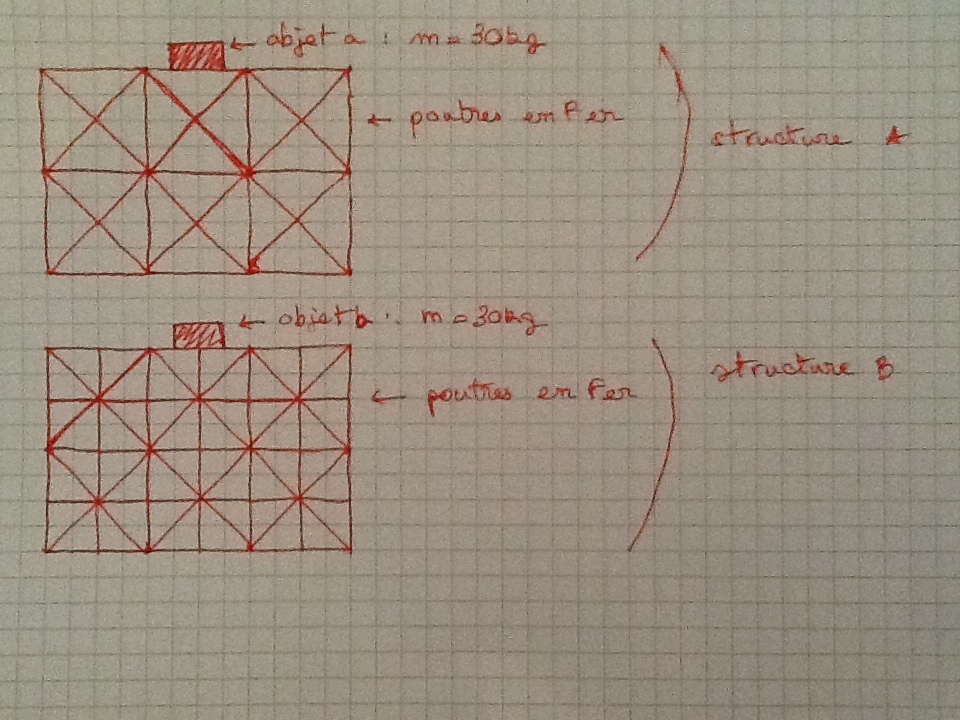 ← objet a : m = 30kg
← poutres en Fer
structure A
← objet b : m = 30kg
← poutres en Fer
structure B